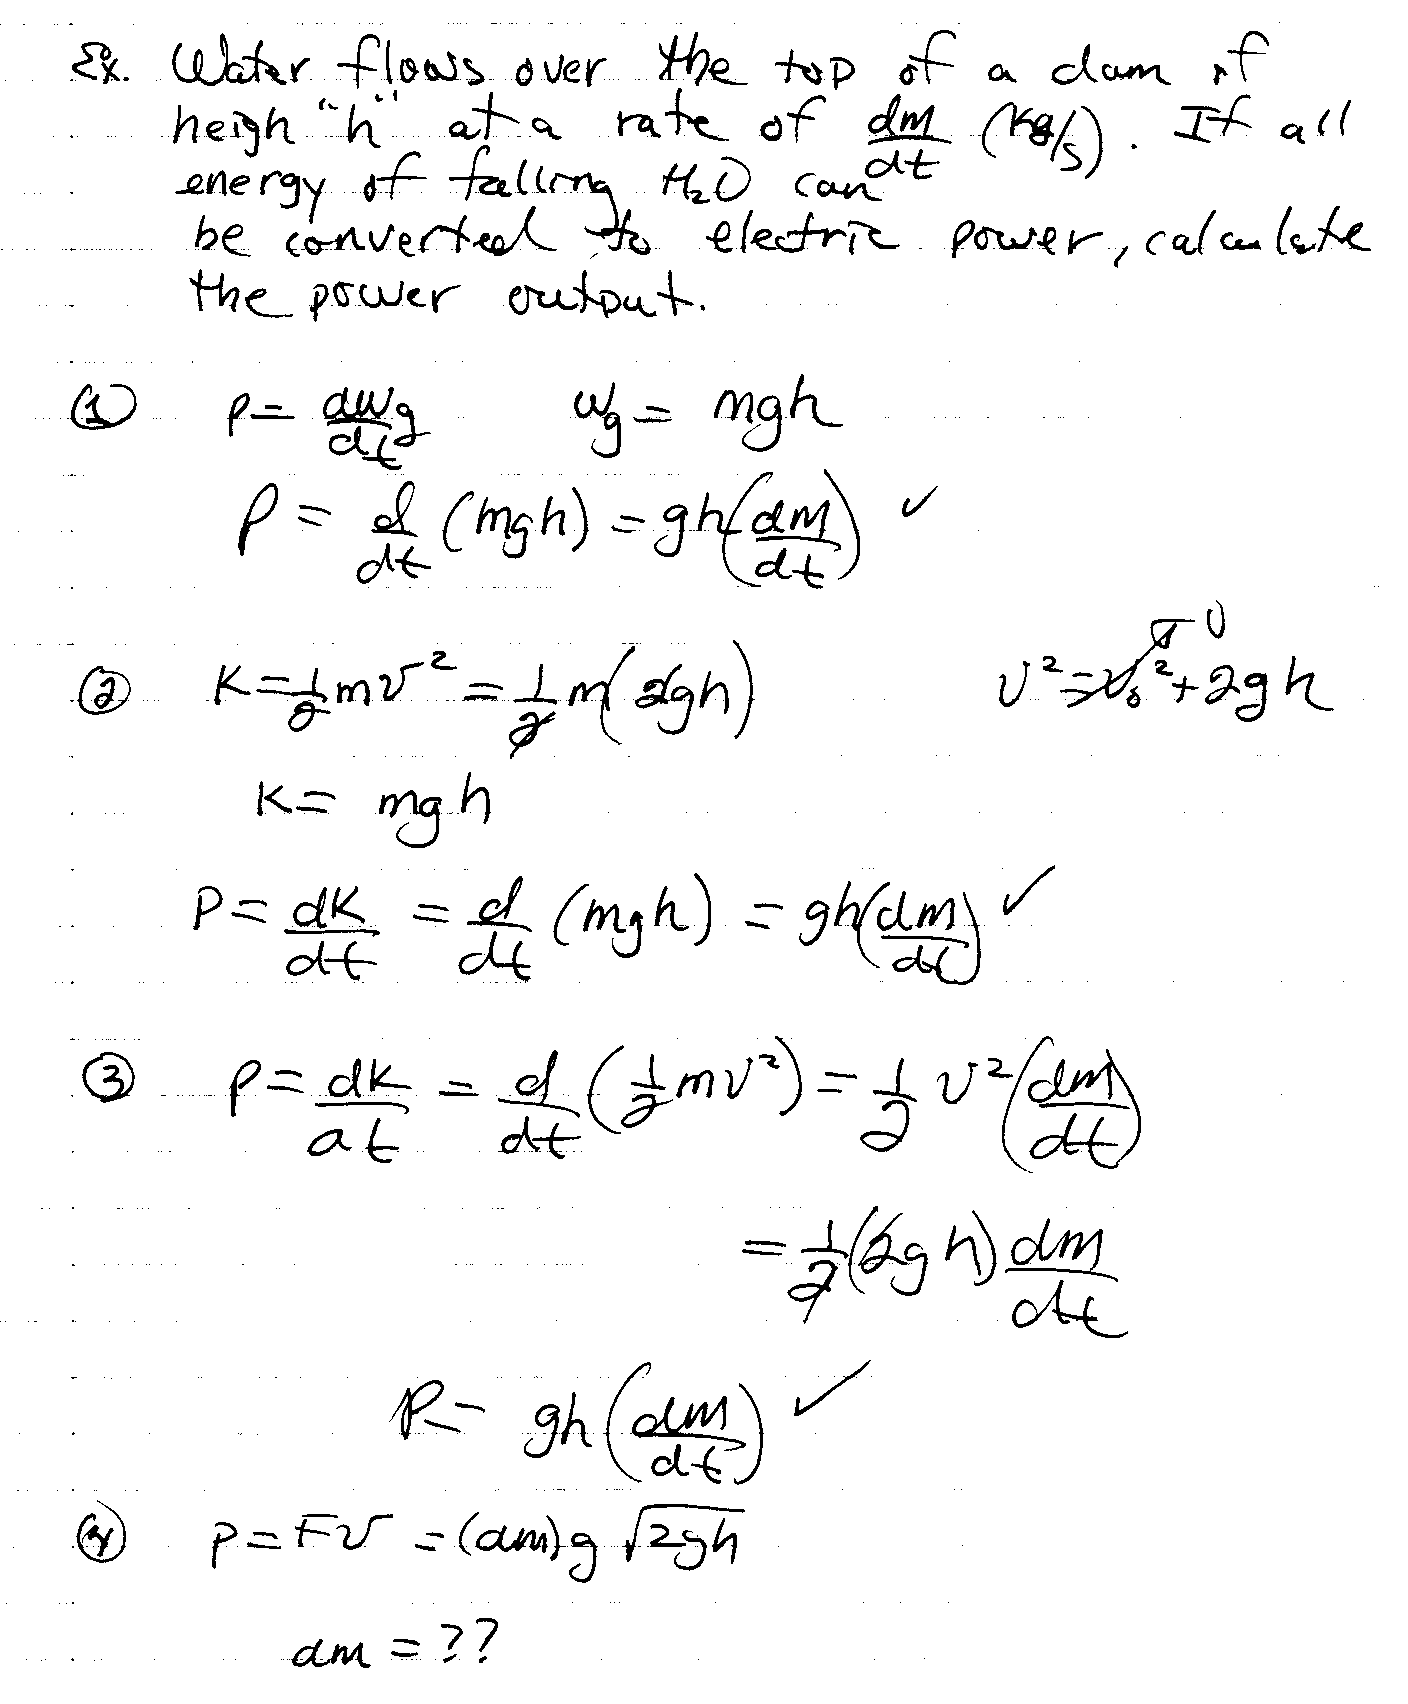 Ex. Water flows over the top of a dam of
heigh "h" at a rate of dm/dt (kg/s). If all
energy of falling H₂O can
be converted to electric power, calculate
the power output.
① P = dWg/dt Wg = mgh
P = d/dt (mgh) = gh(dm/dt) ✓
② K = 1/2 mv² = 1/2 m(2gh) v² = v₀² + 2gh → 0
K = mgh
P = dK/dt = d/dt (mgh) = gh(dm/dt) ✓
③ P = dK/dt = d/dt (1/2 mv²) = 1/2 v² (dm/dt)
= 1/2 (2gh) dm/dt
P = gh (dm/dt) ✓
④ P = Fv = (dm)g √2gh
dm = ??